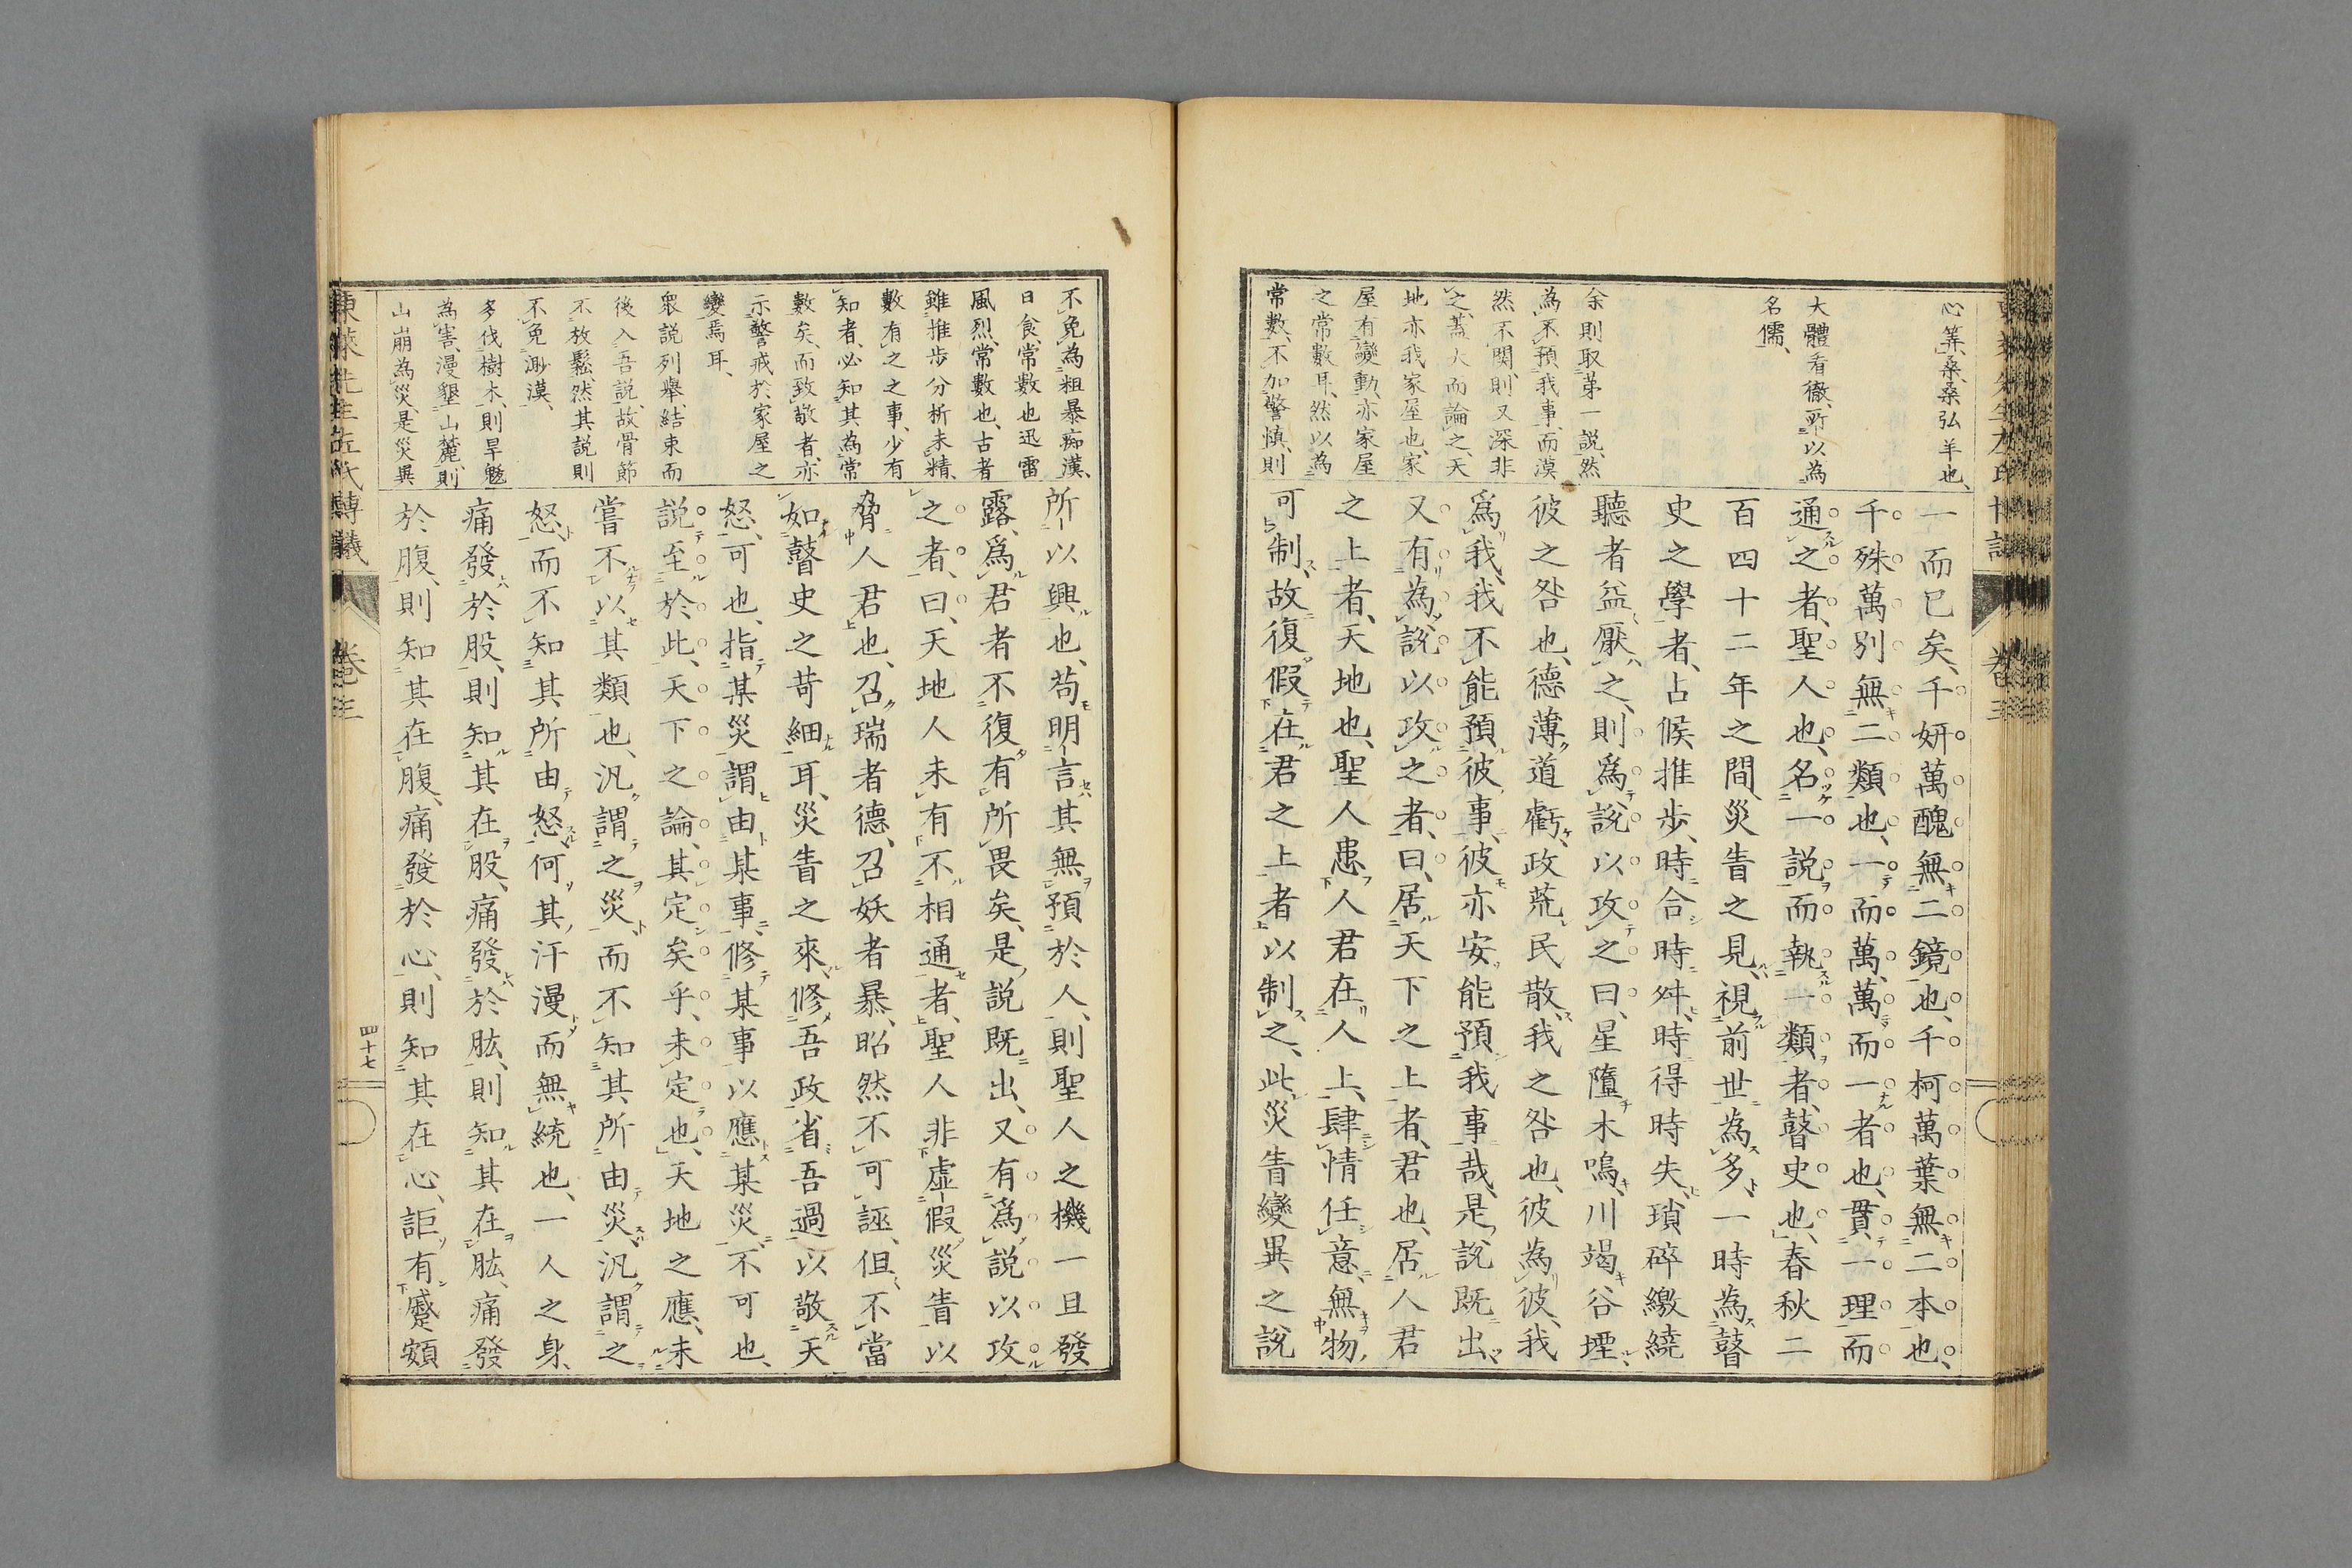 心筭桑桑弘羊也
大體看徹所以為
名儒
余則取第一説然
為不預我事而漠
然不関則又深非
之蓋大而論之天
地亦我家屋也家
屋有變動亦家屋
之常數耳然以為
常數不加警慎則
一而已矣千妍萬醜無二鏡也千柯萬葉無二本也
千殊萬別無二類也一而萬萬而一者也貫一理而
通之者聖人也名一説而執一類者瞽史也春秋二
百四十二年之間災眚之見視前世為多一時為瞽
史之學者占候推步時合時舛時得時失瑣碎繳繞
聽者益厭之則爲説以攻之曰星隕木鳴川竭谷堙
彼之咎也德薄道虧政荒民散我之咎也彼為彼我
爲我我不能預彼事彼亦安能預我事哉是説既出
又有為説以攻之者曰居天下之上者君也居人君
之上者天地也聖人患人君在人上肆情任意無物
可制故復假在君之上者以制之此災眚變異之説
卷三
不免為粗暴痴漢
日食常數也迅雷
風烈常數也古者
雖推步分析未精
數有之之事少有
知者必知其為常
數矣而致敬者亦
示警戒於家屋之
變焉耳
衆説列舉結束而
後入吾説故骨節
不放鬆然其説則
不免渺漠
多伐樹木則旱魃
為害漫墾山麓則
山崩為災是災異
所以興也苟明言其無預於人則聖人之機一旦發
露爲君者不復有所畏矣是説既出又有爲説以攻
之者曰天地人未有不相通者聖人非虛假災眚以
脅人君也召瑞者德召妖者暴昭然不可誣但不當
如瞽史之苛細耳災眚之來修吾政省吾過以敬天
怒可也指某災謂由某事修某事以應某災不可也
説至於此天下之論其定矣乎未定也天地之應未
嘗不以其類也汎謂之災而不知其所由災汎謂之
怒而不知其所由怒何其汗漫而無統也一人之身
痛發於股則知其在股痛發於肱則知其在肱痛發
於腹則知其在腹痛發於心則知其在心詎有蹙頞
東萊先生左氏博議
卷三
四十七